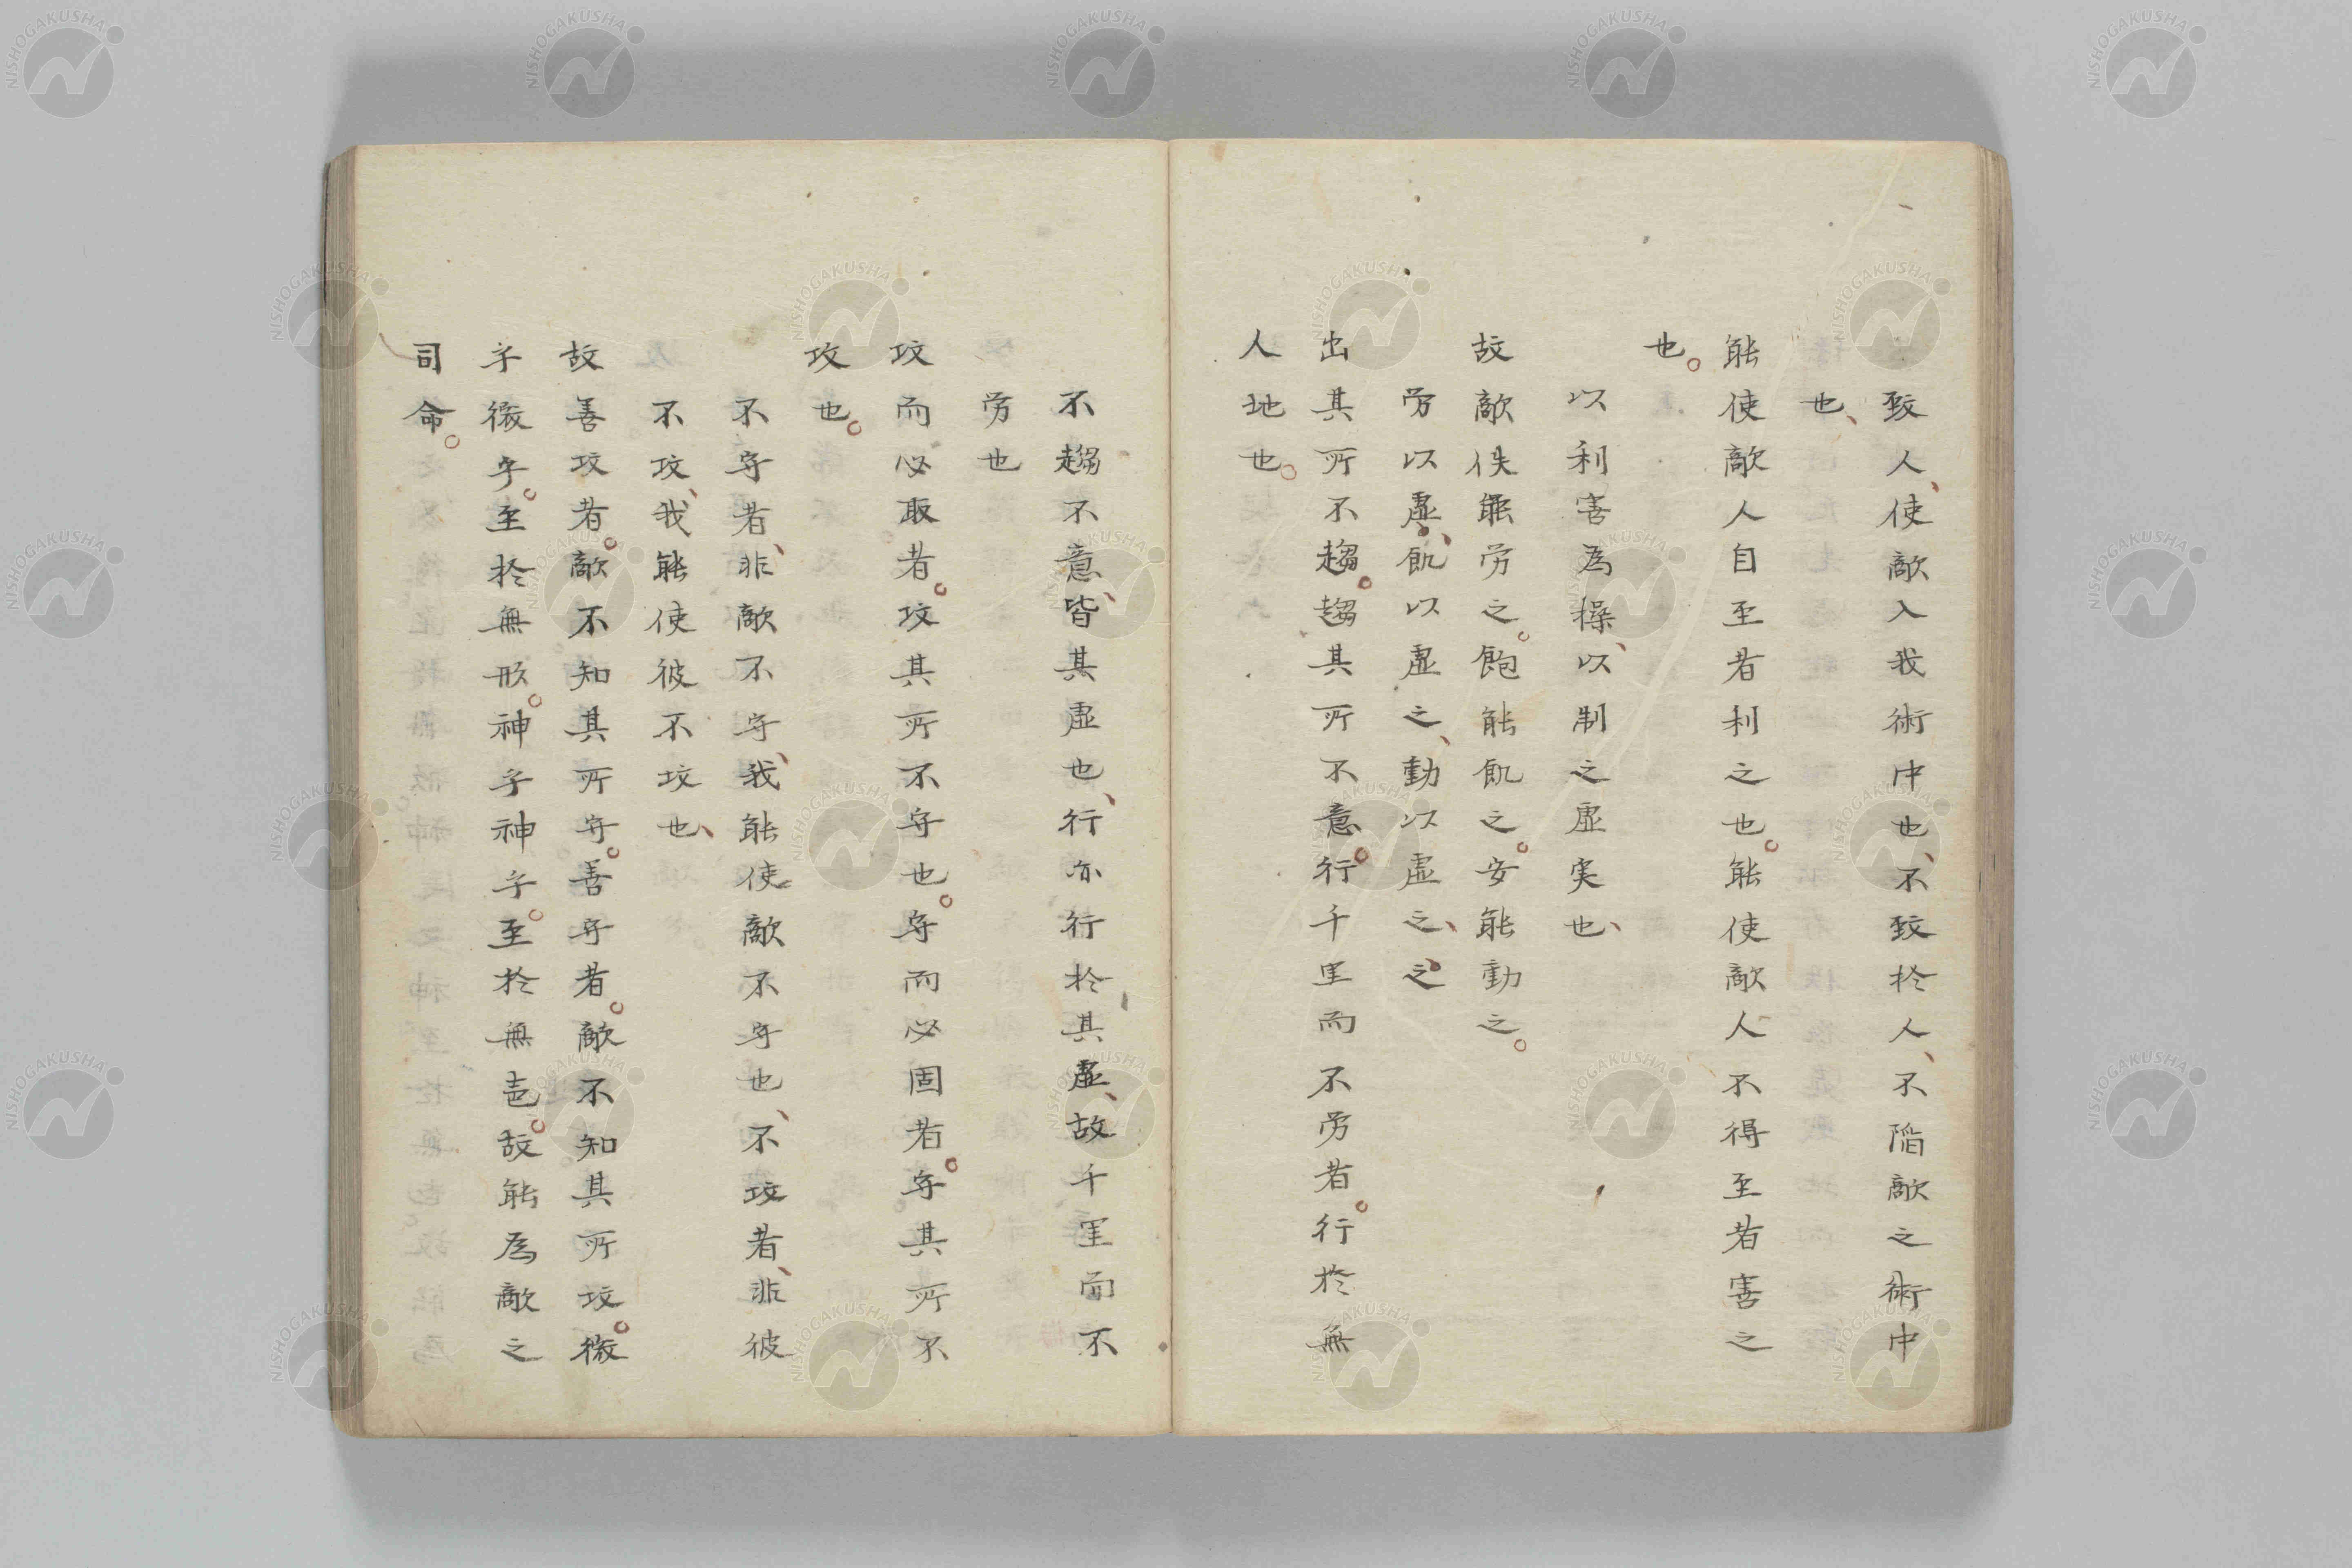 致人、使敵入我術中也、不致於人、不陥敵之術中
也、
能使敵人自至者利之也。能使敵人不得至者害之
也。
以利害為操、以制之虚実也、
故敵佚能労之。飽能飢之。安能動之。
労以虚、飢以虚之、動以虚之、之
出其所不趨。趨其所不意。行千里而不労者。行於無
人地也。
不趨不意、皆其虚也、行亦行於其虚、故千里而不
労也
攻而必取者。攻其所不守也。守而必固者。守其所不
攻也。
不守者、非敵不守、我能使敵不守也、不攻者、非彼
不攻、我能使彼不攻也、
故善攻者。敵不知其所守。善守者。敵不知其所攻。微
乎微乎。至於無形。神乎神乎。至於無声。故能為敵之
司命。
NISHOGAKUSHA